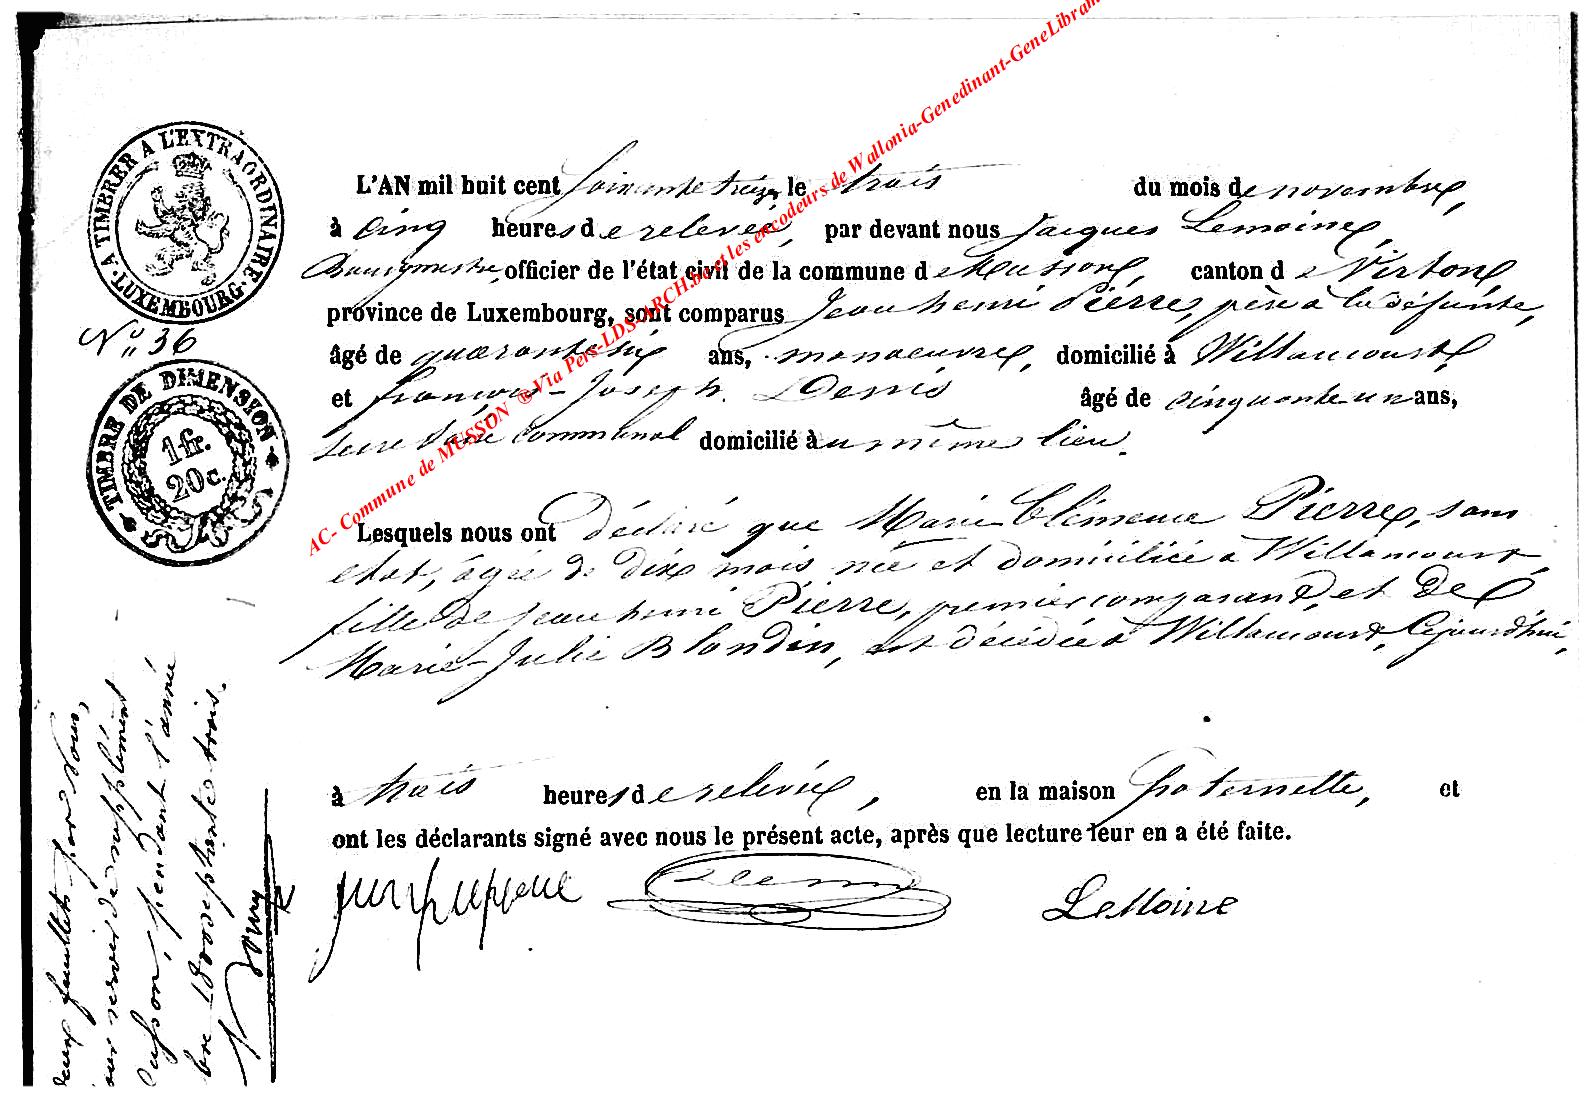 · A TIMBRER A L'EXTRAORDINAIRE ·
· LUXEMBOURG ·
N° 36
TIMBRE DE DIMENSION
1 fr.
20 c.
AC- Commune de MUSSON ®Via Pers-LDS-ARCH.be et les encodeurs de Wallonia-Genedinant-GeneLibram
L'AN mil huit cent soixante treize, le trois du mois de novembre,
à cinq heures de relevée, par devant nous Jacques Lemoine,
Bourgmestre, officier de l'état civil de la commune de Musson, canton de Virton,
province de Luxembourg, sont comparus Jean henri Pierre, père à la défunte,
âgé de quarante six ans, manoeuvre, domicilié à Willancourt
et françois-Joseph Denis âgé de cinquante un ans,
secretaire communal domicilié au même lieu.
Lesquels nous ont déclaré que Marie Clémence Pierre, sans
etat, âgée de dix mois née et domiciliée à Willancourt,
fille de Jean henri Pierre, premier comparant, et de
Marie-Julie Blondin, est décédée à Willancourt, Cejourd'hui,
à trois heures de relevée, en la maison paternelle, et
ont les déclarants signé avec nous le présent acte, après que lecture leur en a été faite.
Denis
LeMoine
deux feuillets par nous,
pour servir de supplément
Musson, pendant l'année
1800 septante trois.